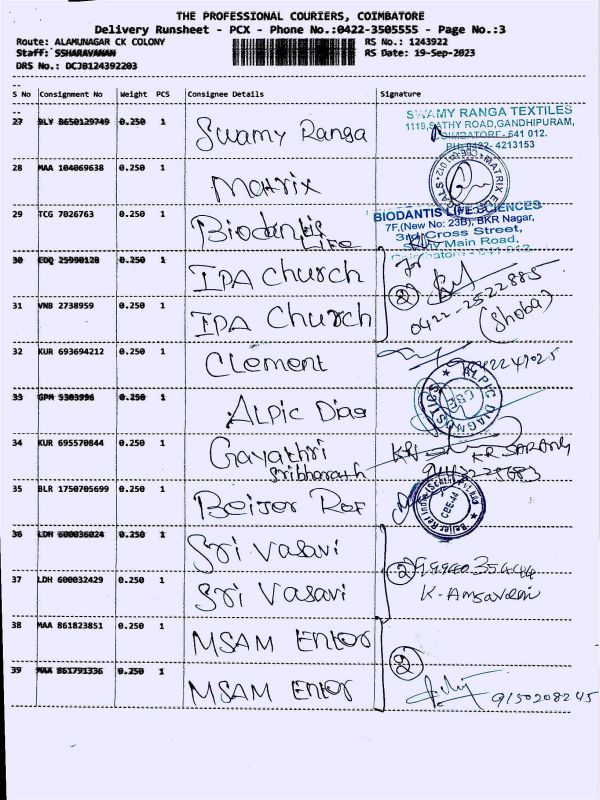 THE PROFESSIONAL COURIERS, COIMBATORE
Delivery Runsheet - PCX - Phone No.:0422-3505555 - Page No.:3
Route: ALAMUNAGAR CK COLONY
RS No.: 1243922
Staff: SSHARAVANAN
RS Date: 19-Sep-2023
DRS No.: DCJB124392203
S No Consignment No Weight PCS Consignee Details Signature
27 BLY 8650129749 0.250 1 Swamy Ranga
SWAMY RANGA TEXTILES
1119,SATHY ROAD,GANDHIPURAM,
COIMBATORE-641 012.
PH: 0422- 4213153
28 MAA 104069638 0.250 1 Matrix
29 TCG 7026763 0.250 1 Biodantis
Life
BIODANTIS LIFE SCIENCES
7F,(New No: 23B), BKR Nagar,
3rd Cross Street,
Main Road,
30 EDQ 25990128 0.250 1 IPA Church
31 VNB 2738959 0.250 1 IPA Church
2
0422-2522885
(Shoba)
32 KUR 693694212 0.250 1 Clement
33 GPM 5303996 0.250 1 ALPIC Diag
ALPIC DIAGNOSTICS
CBE
34 KUR 695570844 0.250 1 Gayathri
Sribharath
35 BLR 1750705699 0.250 1 Beijer Ref
CBE-44
36 LDH 600036024 0.250 1 Sri Vasavi
37 LDH 600032429 0.250 1 Sri Vasavi
2
38 MAA 861823851 0.250 1 MSAM Enter
39 MAA 861791336 0.250 1 MSAM Enter
2
9150208245